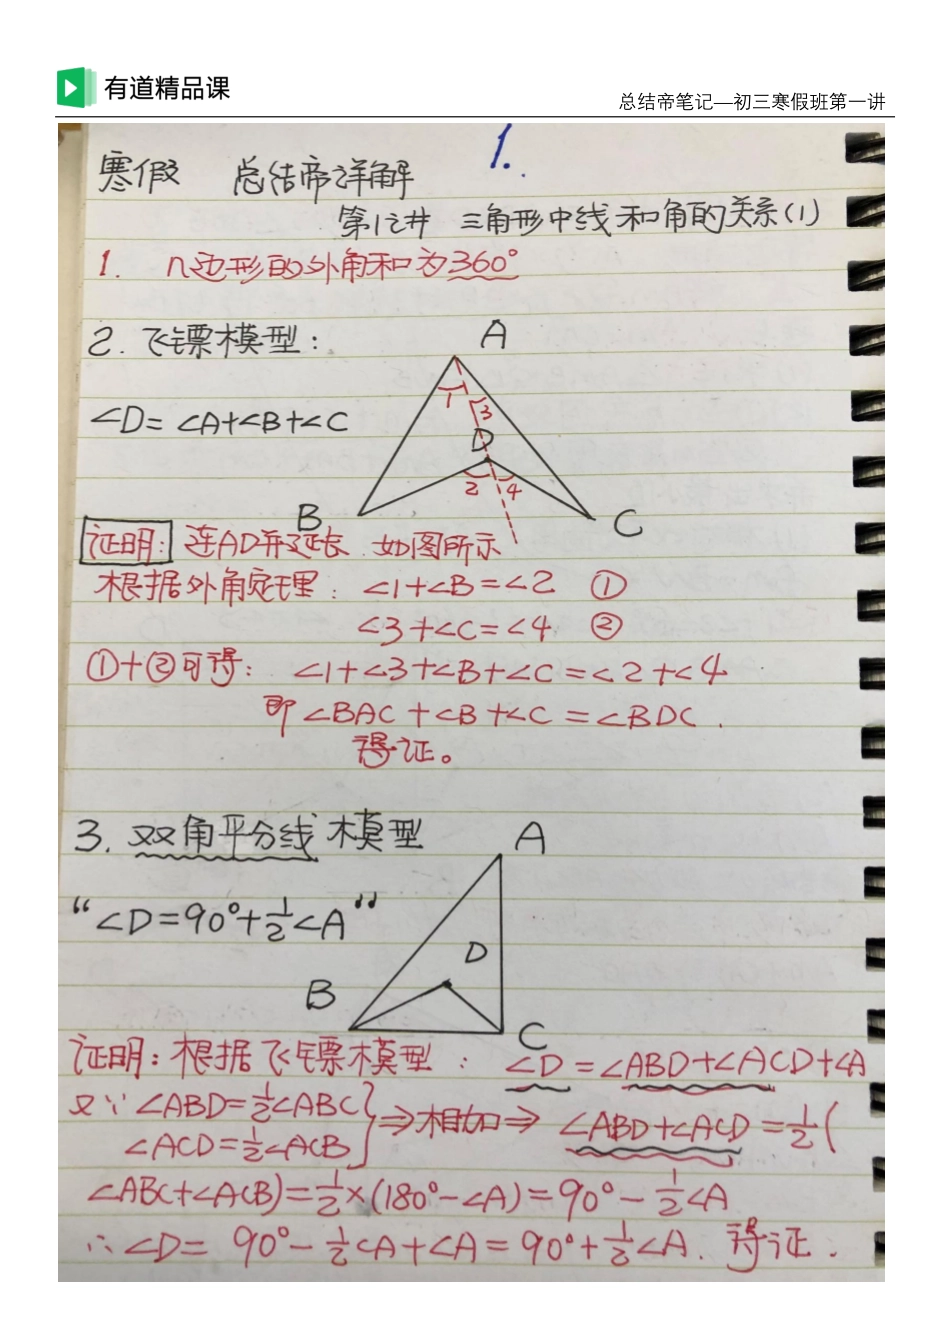 有道精品课
总结帝笔记—初三寒假班第一讲
1.
寒假 总结帝详解
第1讲 三角形中线和角的关系(1)
1. n边形的外角和为360°
2. 飞镖模型:
A
∠D=∠A+∠B+∠C
1
3
D
2 4
B C
证明: 连AD并延长 如图所示
根据外角定理: ∠1+∠B=∠2 ①
∠3+∠C=∠4 ②
①+②可得: ∠1+∠3+∠B+∠C=∠2+∠4
即∠BAC+∠B+∠C=∠BDC.
得证。
3. 双角平分线模型
A
“∠D=90°+½∠A”
D
B
C
证明:根据飞镖模型: ∠D=∠ABD+∠ACD+∠A
又∵∠ABD=½∠ABC
∠ACD=½∠ACB } ⇒相加⇒ ∠ABD+∠ACD=½(
∠ABC+∠ACB)=½×(180°-∠A)=90°-½∠A
∴∠D= 90°-½∠A+∠A=90°+½∠A. 得证.